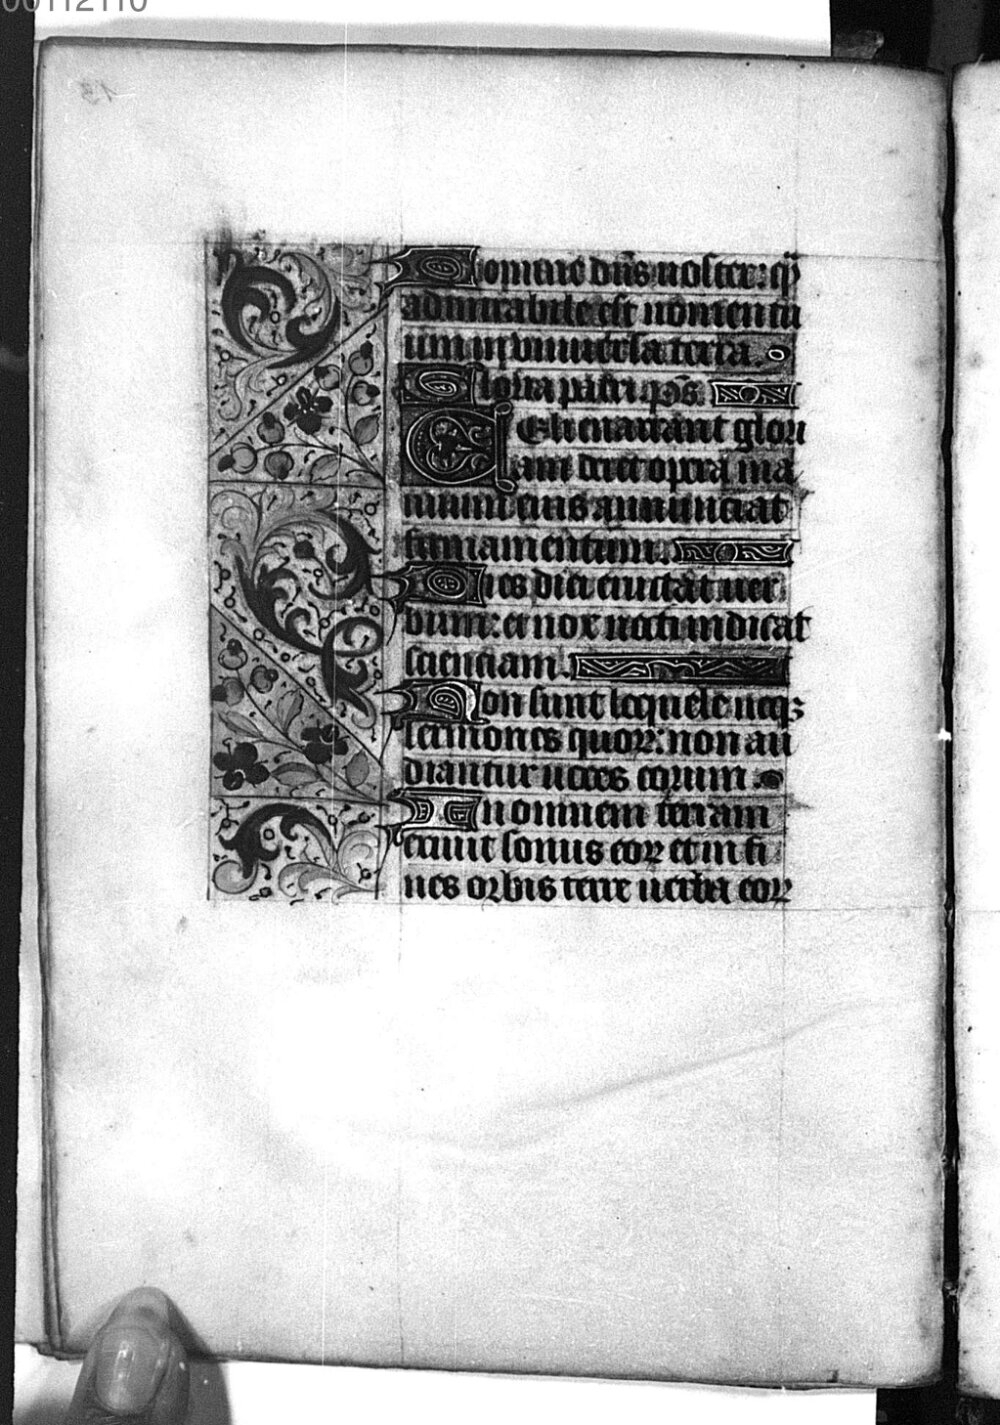 00112110
13
Domine dn̄s noster: q̄
admirabile est nomen tu
um in vniuersa terra.
Gloria patri. ps̄.
Celi enarrant glori
am dei et opera ma
nuum eius annunciat
firmamentum.
Dies diei eructat uer
bum: et nox nocti indicat
scienciam.
Non sunt loquele neqꝫ
sermones quoꝝ: non au
diantur uoces eorum.
In omnem terram
exiuit sonus eoꝝ et in fi
nes orbis terre uerba eoꝝ